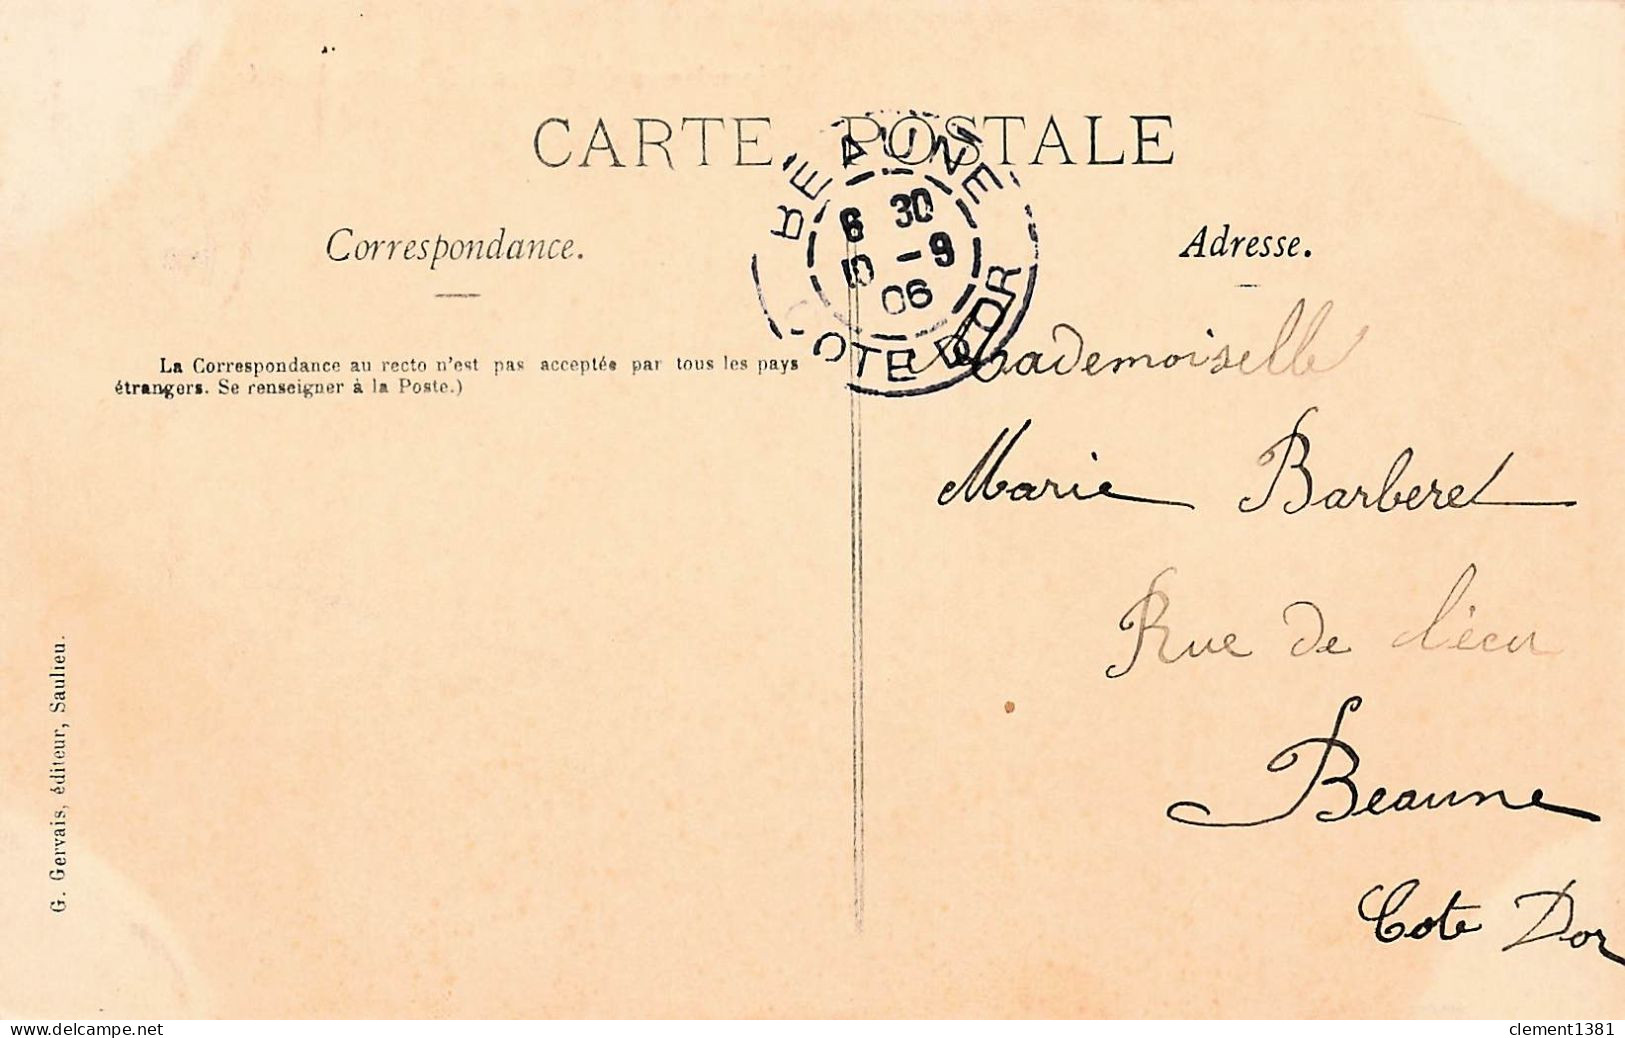 CARTE POSTALE
BEAUNE
6 30
10 -9
06
COTE D'OR
Correspondance.
La Correspondance au recto n'est pas acceptée par tous les pays
étrangers. Se renseigner à la Poste.)
G. Gervais, éditeur, Saulieu.
Adresse.
Mademoiselle
Marie Barberet
Rue de l'écu
Beaune
Cote Dor
www.delcampe.net
clement1381